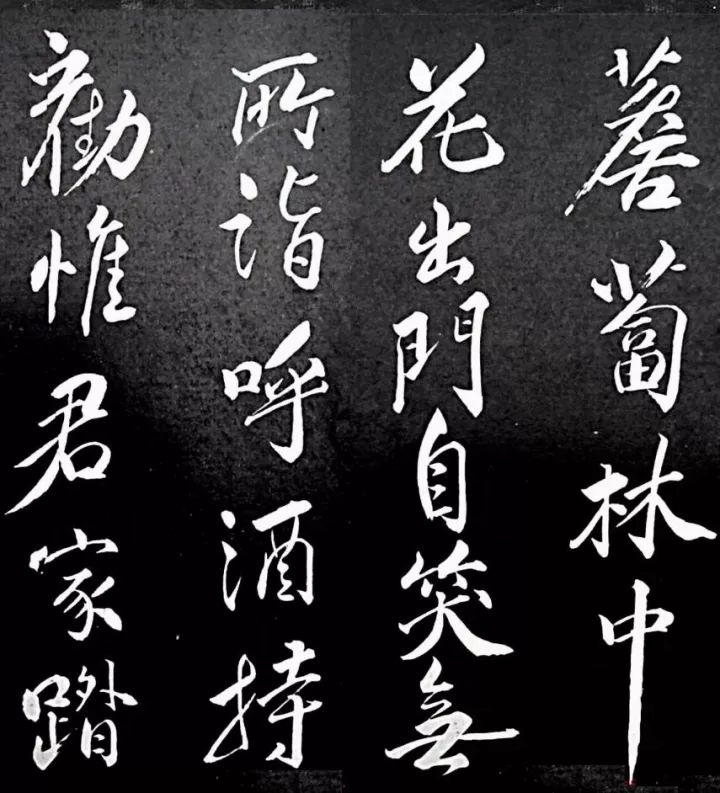 薝蔔林中
花出門自笑無
所詣呼酒持
勸惟君家踏